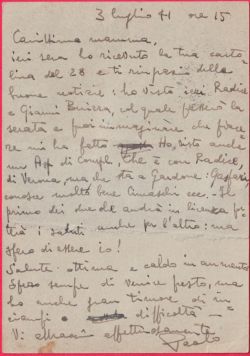 3 luglio 41 ore 15
Carissima mamma,
ieri sera ho ricevuto la tua carto
lina del 28 e ti ringrazio delle
buone notizie: ho visto ieri Radice
e Gianni col quale passerò la
serata e puoi immaginare che piace
re mi ha fatto. Ho visto anche
un di che è con Radice,
di Verona, ma che sta a Gardone:
conosce molto bene ecc. Il
primo dei due che andrà in licenza por
terà i saluti anche per l'altro: ma
spero di essere io!
Salute ottima e caldo in aumento
Spero sempre di venire presto, ma
ho anche gran timore di in
ciampi o difficoltà —
Vi abbraccio affettuosamente
Paolo